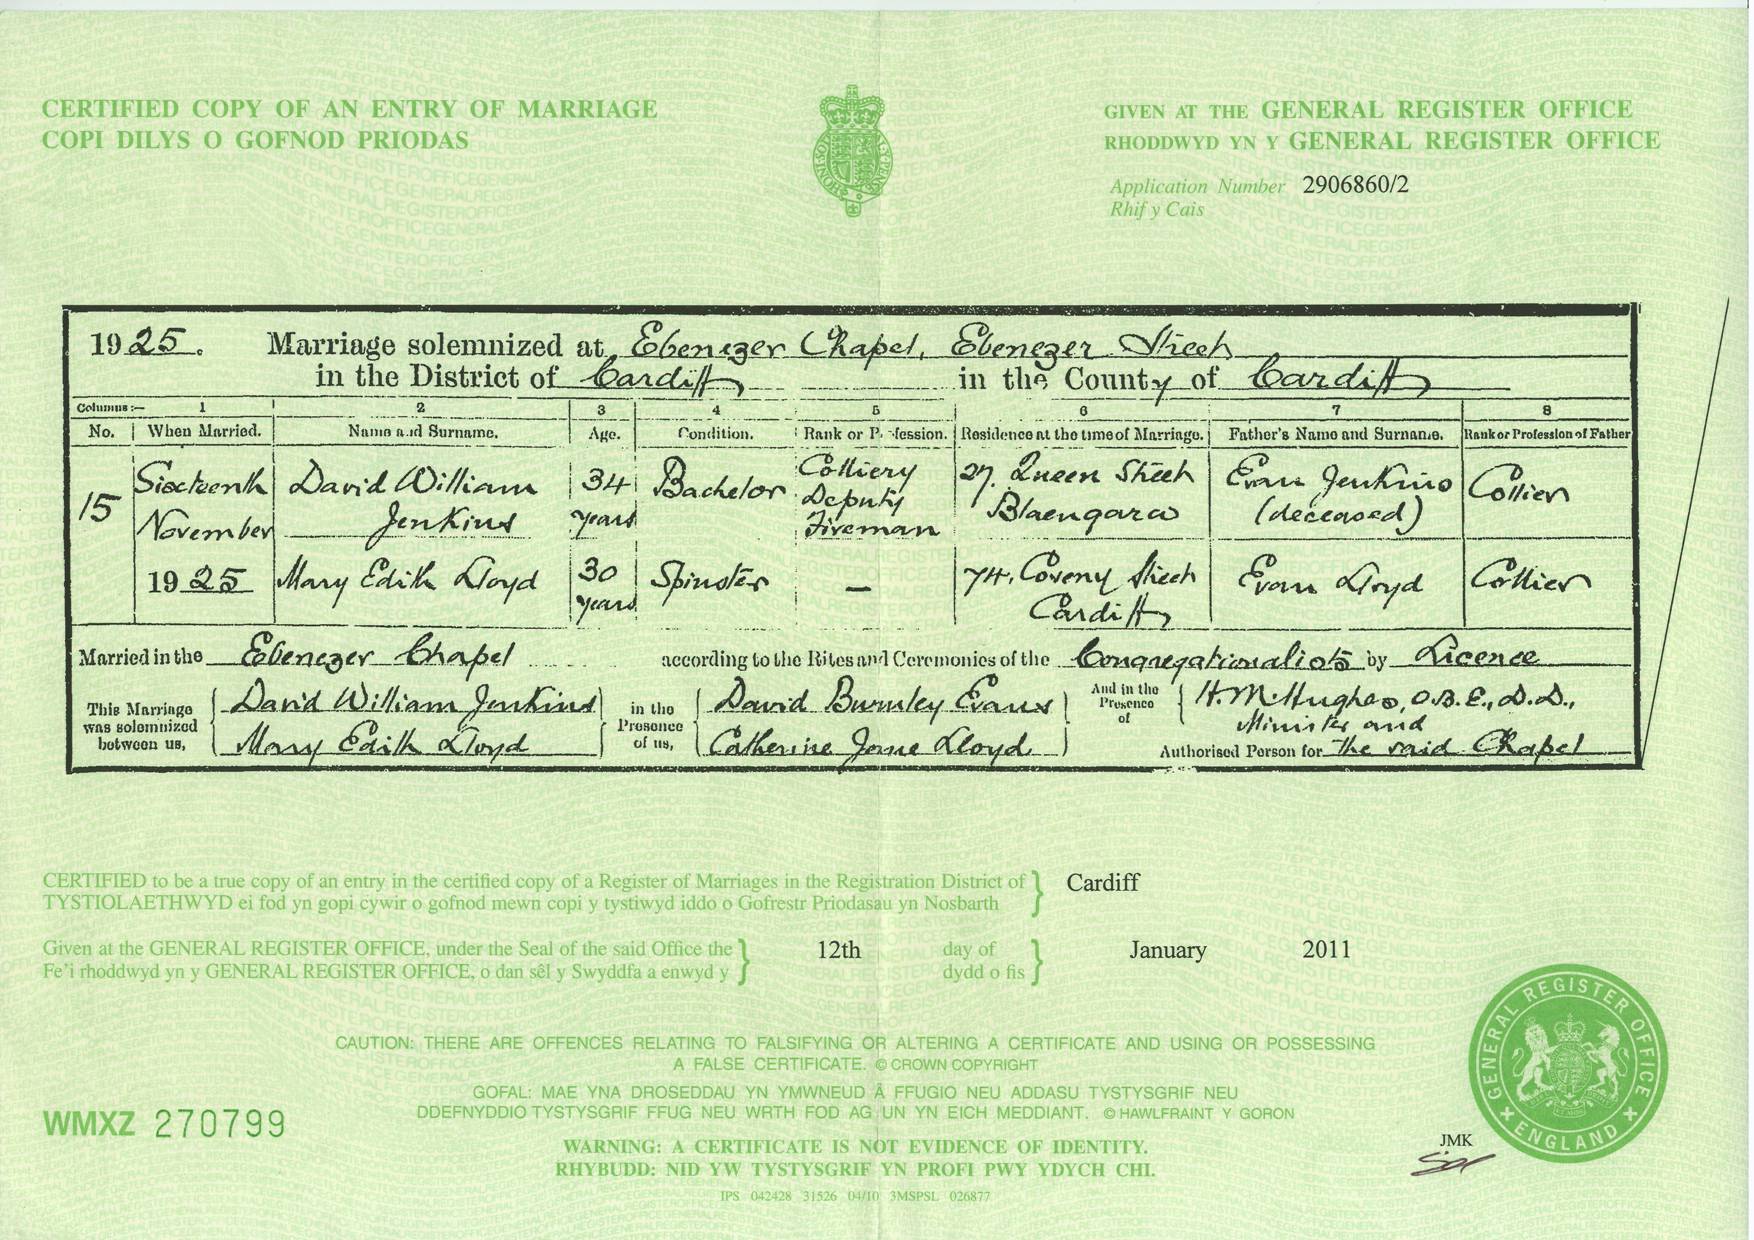 CERTIFIED COPY OF AN ENTRY OF MARRIAGE
COPI DILYS O GOFNOD PRIODAS
GIVEN AT THE GENERAL REGISTER OFFICE
RHODDWYD YN Y GENERAL REGISTER OFFICE
Application Number 2906860/2
Rhif y Cais
1925. Marriage solemnized at Ebenezer Chapel, Ebenezer Street
in the District of Cardiff in the County of Cardiff
Columns:— 1 2 3 4 5 6 7 8
No. When Married. Name and Surname. Age. Condition. Rank or Profession. Residence at the time of Marriage. Father's Name and Surname. Rank or Profession of Father
15 Sixteenth November 1925
David William Jenkins 34 years Bachelor Colliery Deputy Fireman 27, Queen Street Blaengarw Evan Jenkins (deceased) Collier
Mary Edith Lloyd 30 years Spinster — 74, Coveny Street Cardiff Evan Lloyd Collier
Married in the Ebenezer Chapel according to the Rites and Ceremonies of the Congregationalists by Licence
This Marriage was solemnized between us, David William Jenkins Mary Edith Lloyd
in the Presence of us, David Burnley Evans Catherine Jane Lloyd
And in the Presence of H. M. Hughes, O.B.E., D.D.,
Minister and
Authorised Person for the said Chapel
CERTIFIED to be a true copy of an entry in the certified copy of a Register of Marriages in the Registration District of Cardiff
TYSTIOLAETHWYD ei fod yn gopi cywir o gofnod mewn copi y tystiwyd iddo o Gofrestr Priodasau yn Nosbarth
Given at the GENERAL REGISTER OFFICE, under the Seal of the said Office the 12th day of January 2011
Fe'i rhoddwyd yn y GENERAL REGISTER OFFICE, o dan sêl y Swyddfa a enwyd y dydd o fis
CAUTION: THERE ARE OFFENCES RELATING TO FALSIFYING OR ALTERING A CERTIFICATE AND USING OR POSSESSING
A FALSE CERTIFICATE. © CROWN COPYRIGHT
GOFAL: MAE YNA DROSEDDAU YN YMWNEUD Â FFUGIO NEU ADDASU TYSTYSGRIF NEU
DDEFNYDDIO TYSTYSGRIF FFUG NEU WRTH FOD AG UN YN EICH MEDDIANT. © HAWLFRAINT Y GORON
WARNING: A CERTIFICATE IS NOT EVIDENCE OF IDENTITY.
RHYBUDD: NID YW TYSTYSGRIF YN PROFI PWY YDYCH CHI.
IPS 042428 31526 04/10 3MSPSL 026877
WMXZ 270799
GENERAL REGISTER OFFICE ENGLAND
JMK